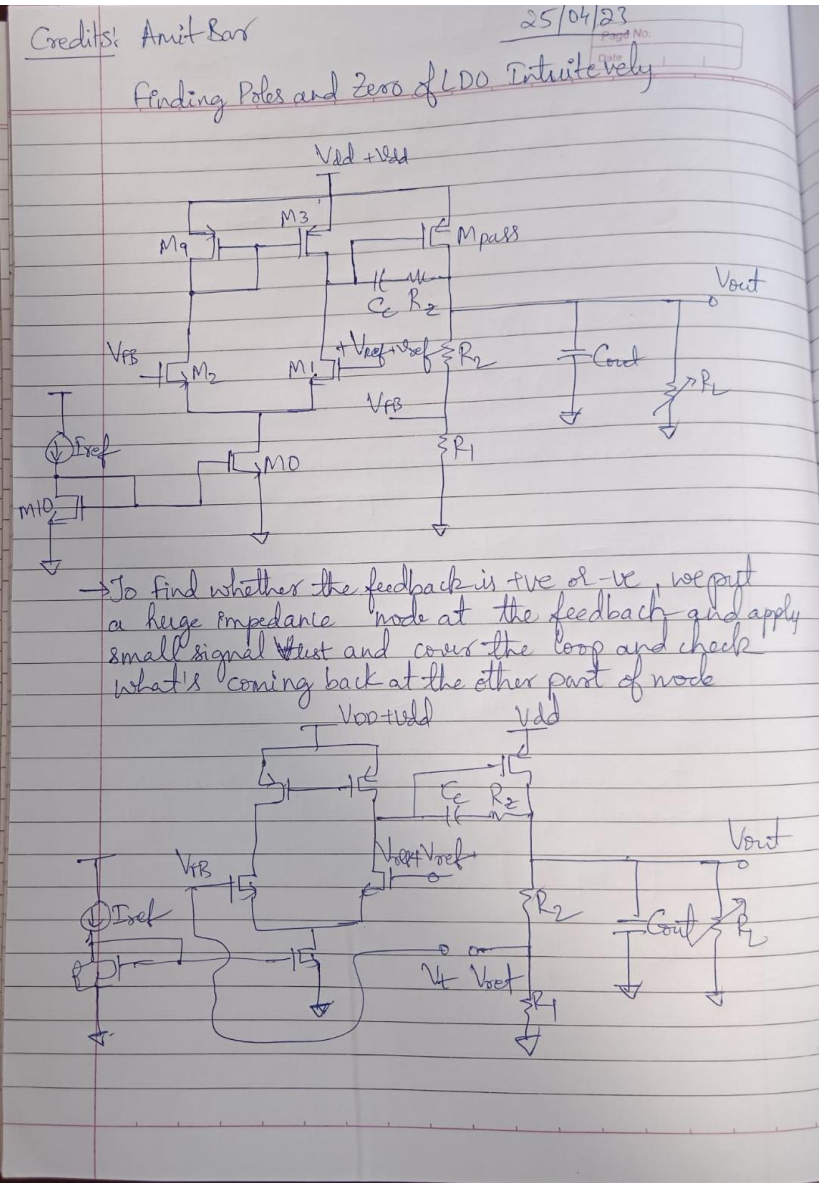 Credits: Amit Bar
25/04/23
Page No.
Date
Finding Poles and Zero of LDO Intuitevely
Vdd + vdd
M9
M3
Mpass
Cc Rz
Vout
VFB
M2
M1
+ Vref + vref
R2
Cout
RL
VFB
Iref
M0
R1
M10
→ To find whether the feedback is +ve or -ve, we put
a huge impedance node at the feedback and apply
small signal Vtest and cover the loop and check
what's coming back at the other part of node
VDD + vdd
Vdd
Cc Rz
VFB
Vref + Vref
Vout
Iref
R2
Cout
RL
Vt Vret
R1